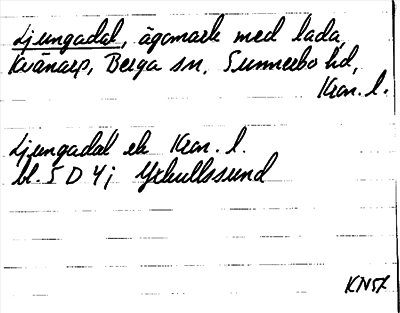 Ljungadal, ägomark med lada,
Kvänarp, Berga sn, Sunnerbo hd,
Kron. l.
Ljungadal ek Kron. l.
bl. 5 D 4 j Yxkullssund
KN57